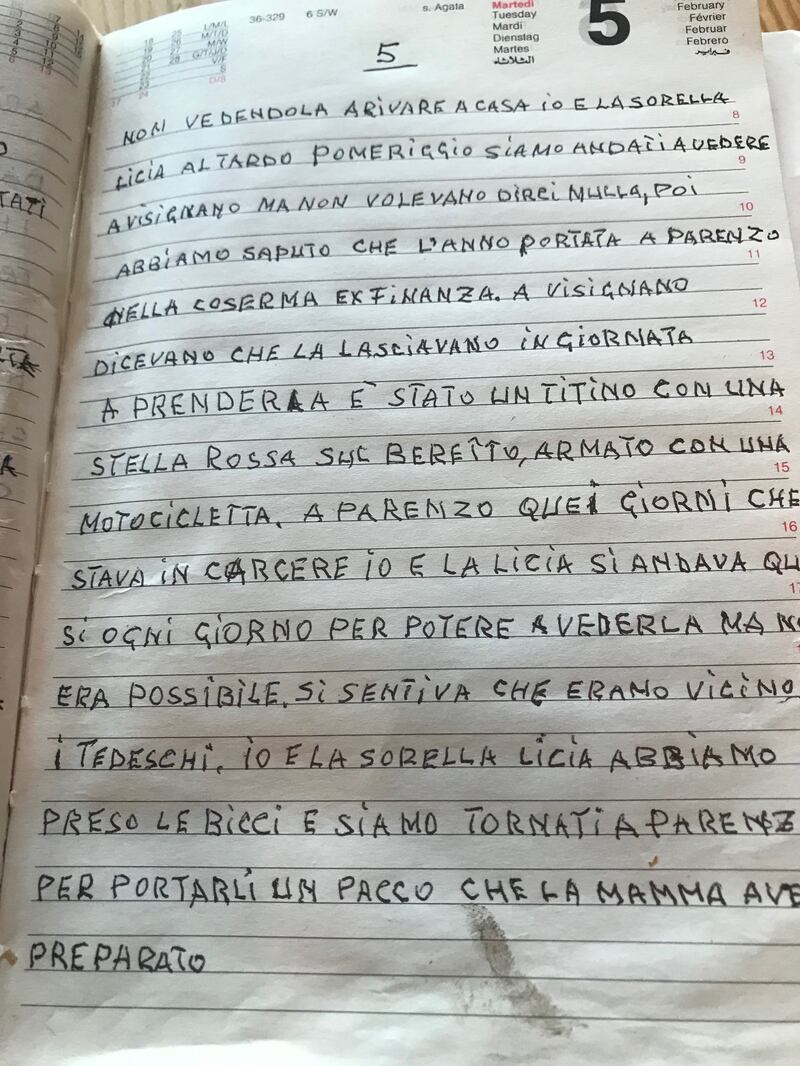 36-329 6 S/W
s. Agata
Martedì
Tuesday
Mardi
Dienstag
Martes
الثلاثاء
5
February
Février
Februar
Febrero
فبراير
L/M/L
M/T/D
M/W
G/T/J/D
V/F
S
D/S
5
NON VEDENDOLA ARIVARE A CASA IO E LA SORELLA
8
LICIA AL TARDO POMERIGGIO SIAMO ANDATI A VEDERE
9
A VISIGNANO MA NON VOLEVANO DIRCI NULLA, POI
10
ABBIAMO SAPUTO CHE L'ANNO PORTATA A PARENZO
11
NELLA COSERMA EX FINANZA. A VISIGNANO
12
DICEVANO CHE LA LASCIAVANO IN GIORNATA
13
A PRENDERLA E' STATO UN TITINO CON UNA
14
STELLA ROSSA SUL BERETTO, ARMATO CON UNA
15
MOTOCICLETTA. A PARENZO QUEI GIORNI CHE
16
STAVA IN CARCERE IO E LA LICIA SI ANDAVA QU
SI OGNI GIORNO PER POTERE A VEDERLA MA NO
ERA POSSIBILE. SI SENTIVA CHE ERANO VICINO
I TEDESCHI. IO E LA SORELLA LICIA ABBIAMO
PRESO LE BICCI E SIAMO TORNATI A PARENZ
PER PORTARLI UN PACCO CHE LA MAMMA AVE
PREPARATO